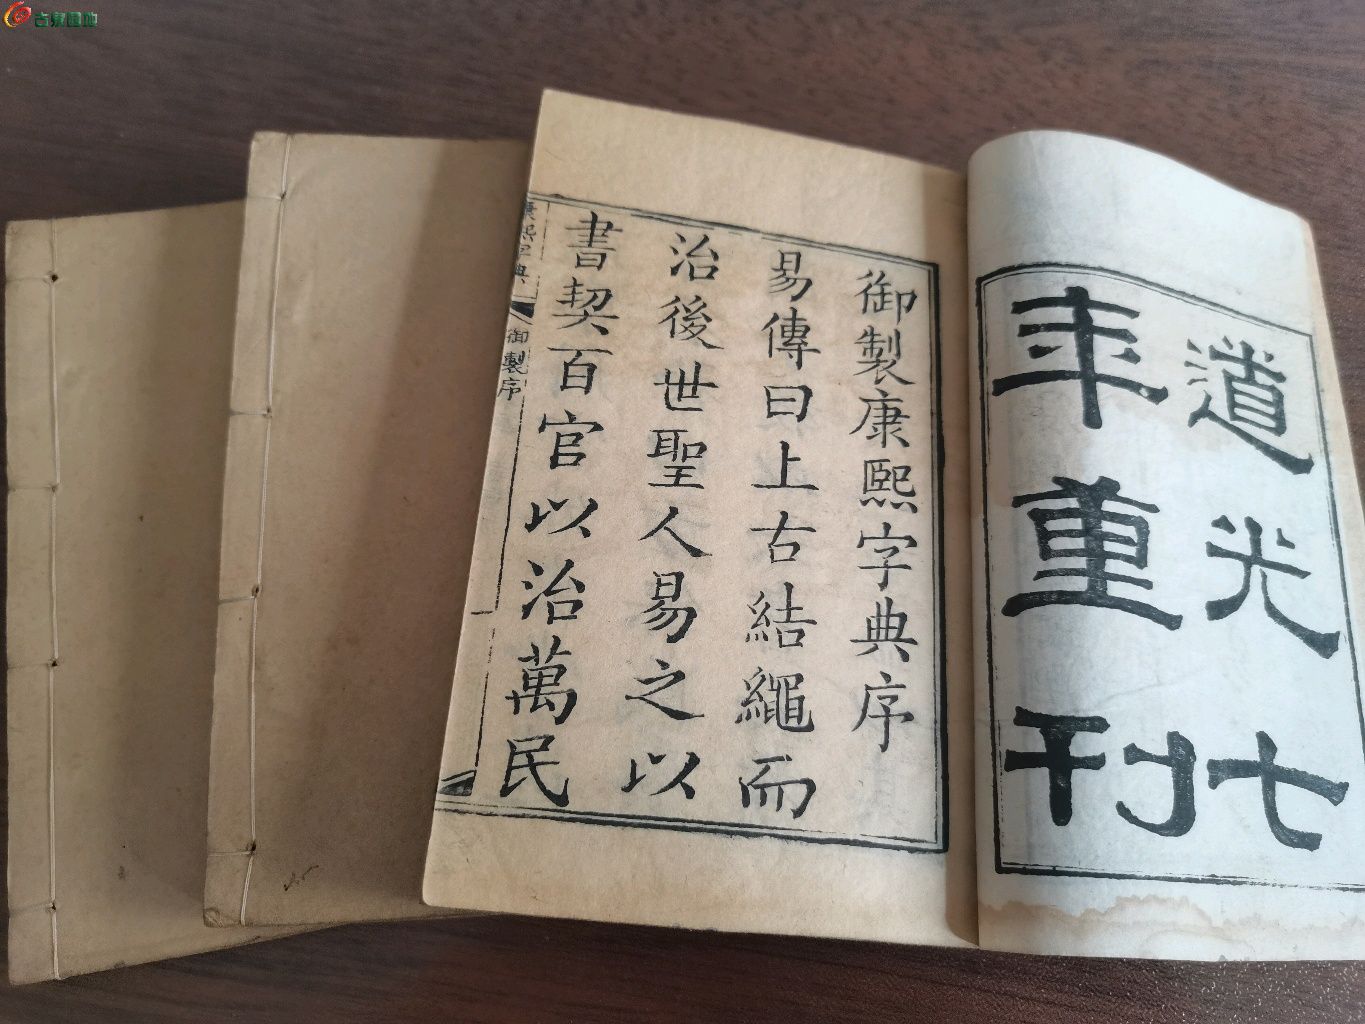 道光七
年重刊
御製康熙字典序
易傳曰上古結繩而
治後世聖人易之以
書契百官以治萬民
康熙字典
御製序
古泉園地